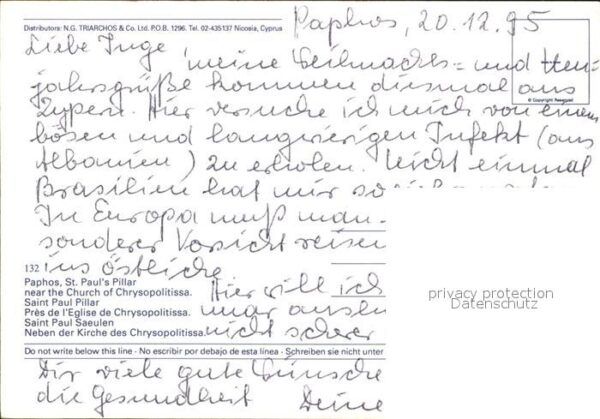 Distributors: N.G. TRIARCHOS & Co. Ltd. P.O.B. 1296. Tel. 02-435137 Nicosia, Cyprus
Paphos, 20.12.95
Liebe Inge, meine Weihnachs= und Neu-
jahrsgrüße kommen diesmal aus
Zypern. Hier versuche ich mich von einem
bösen und langwierigen Infekt (aus
Albanien) zu erholen. Nicht einmal
Brasilien hat mir so
In Europa muß man
sonderer Vorsicht reisen
ins östliche
© Copyright Reserved
132
Paphos, St. Paul's Pillar
near the Church of Chrysopolitissa.
Saint Paul Pillar
Près de l'Eglise de Chrysopolitissa.
Saint Paul Saeulen
Neben der Kirche des Chrysopolitissa.
Hier will ich
nur
nicht
Do not write below this line · No escribir por debajo de esta línea · Schreiben sie nicht unter
Dir viele gute Wünsche
die Gesundheit Deine
privacy protection
Datenschutz